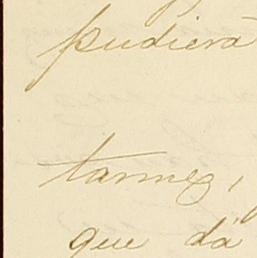 pudiera
tarmey,
que dá